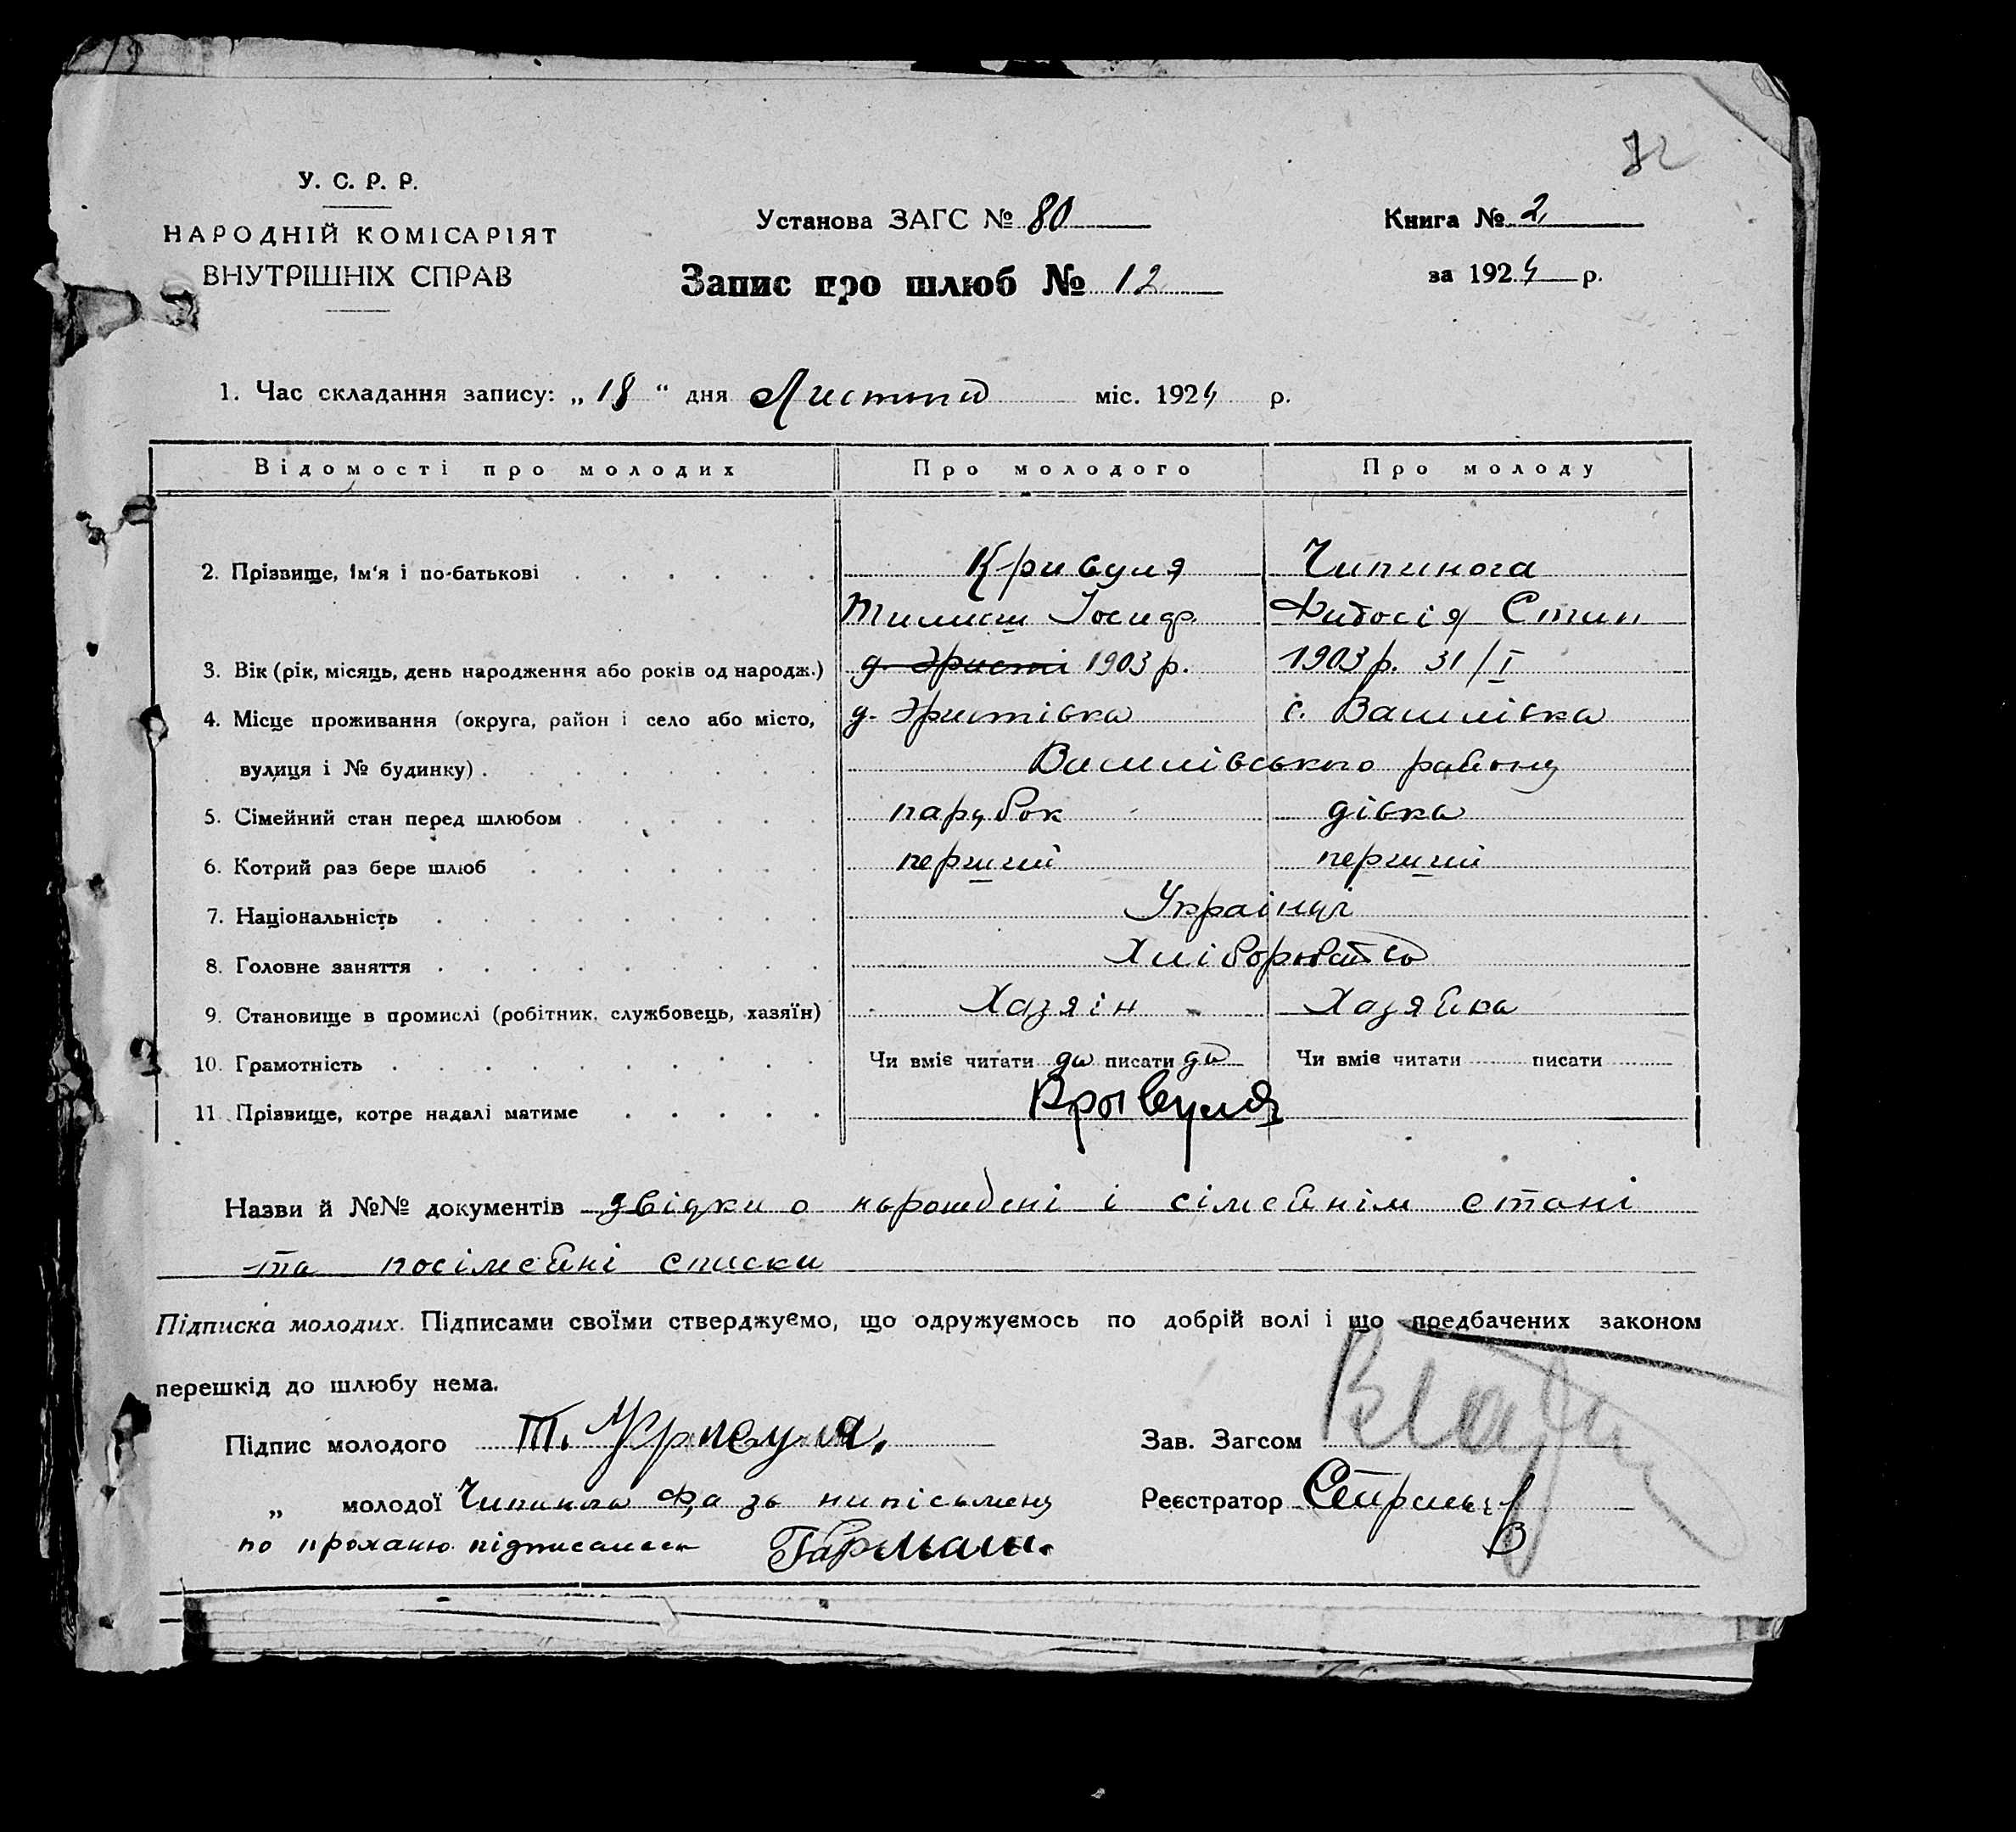 72
У. С. Р. Р.
НАРОДНІЙ КОМІСАРІЯТ
ВНУТРІШНІХ СПРАВ
Установа ЗАГС № 80
Запис про шлюб № 12
Книга № 2
за 1924 р.
1. Час складання запису: „ 18 “ дня Листопад міс. 1924 р.
Відомості про молодих Про молодого Про молоду
2. Прізвище, ім'я і по-батькові Кривуля Чипинога
Тимиш Іосиф. Федосія Степ
3. Вік (рік, місяць, день народження або років од народж.) 1903 р. 1903 р. 31/I
4. Місце проживання (округа, район і село або місто, д. Эристівка с. Василівка
вулиця і № будинку) Василівського району
5. Сімейний стан перед шлюбом парубок дівка
6. Котрий раз бере шлюб перший перший
7. Національність Українці
8. Головне заняття Хліборобство
9. Становище в промислі (робітник, службовець, хазяїн) Хазяін Хазяйка
10. Грамотність Чи вміє читати да писати да Чи вміє читати писати
11. Прізвище, котре надалі матиме Крывуля
Назви й №№ документів звідки о нарождені і сімейнім стані
та посімейні списки
Підписка молодих. Підписами своїми стверджуємо, що одружуємось по добрій волі і що предбачених законом
перешкід до шлюбу нема.
Підпис молодого Т. Кривуля. Зав. Загсом
„ молодої Чипинога Ф, а за ниписьмену Реєстратор
по проханю підписался Гармаш.